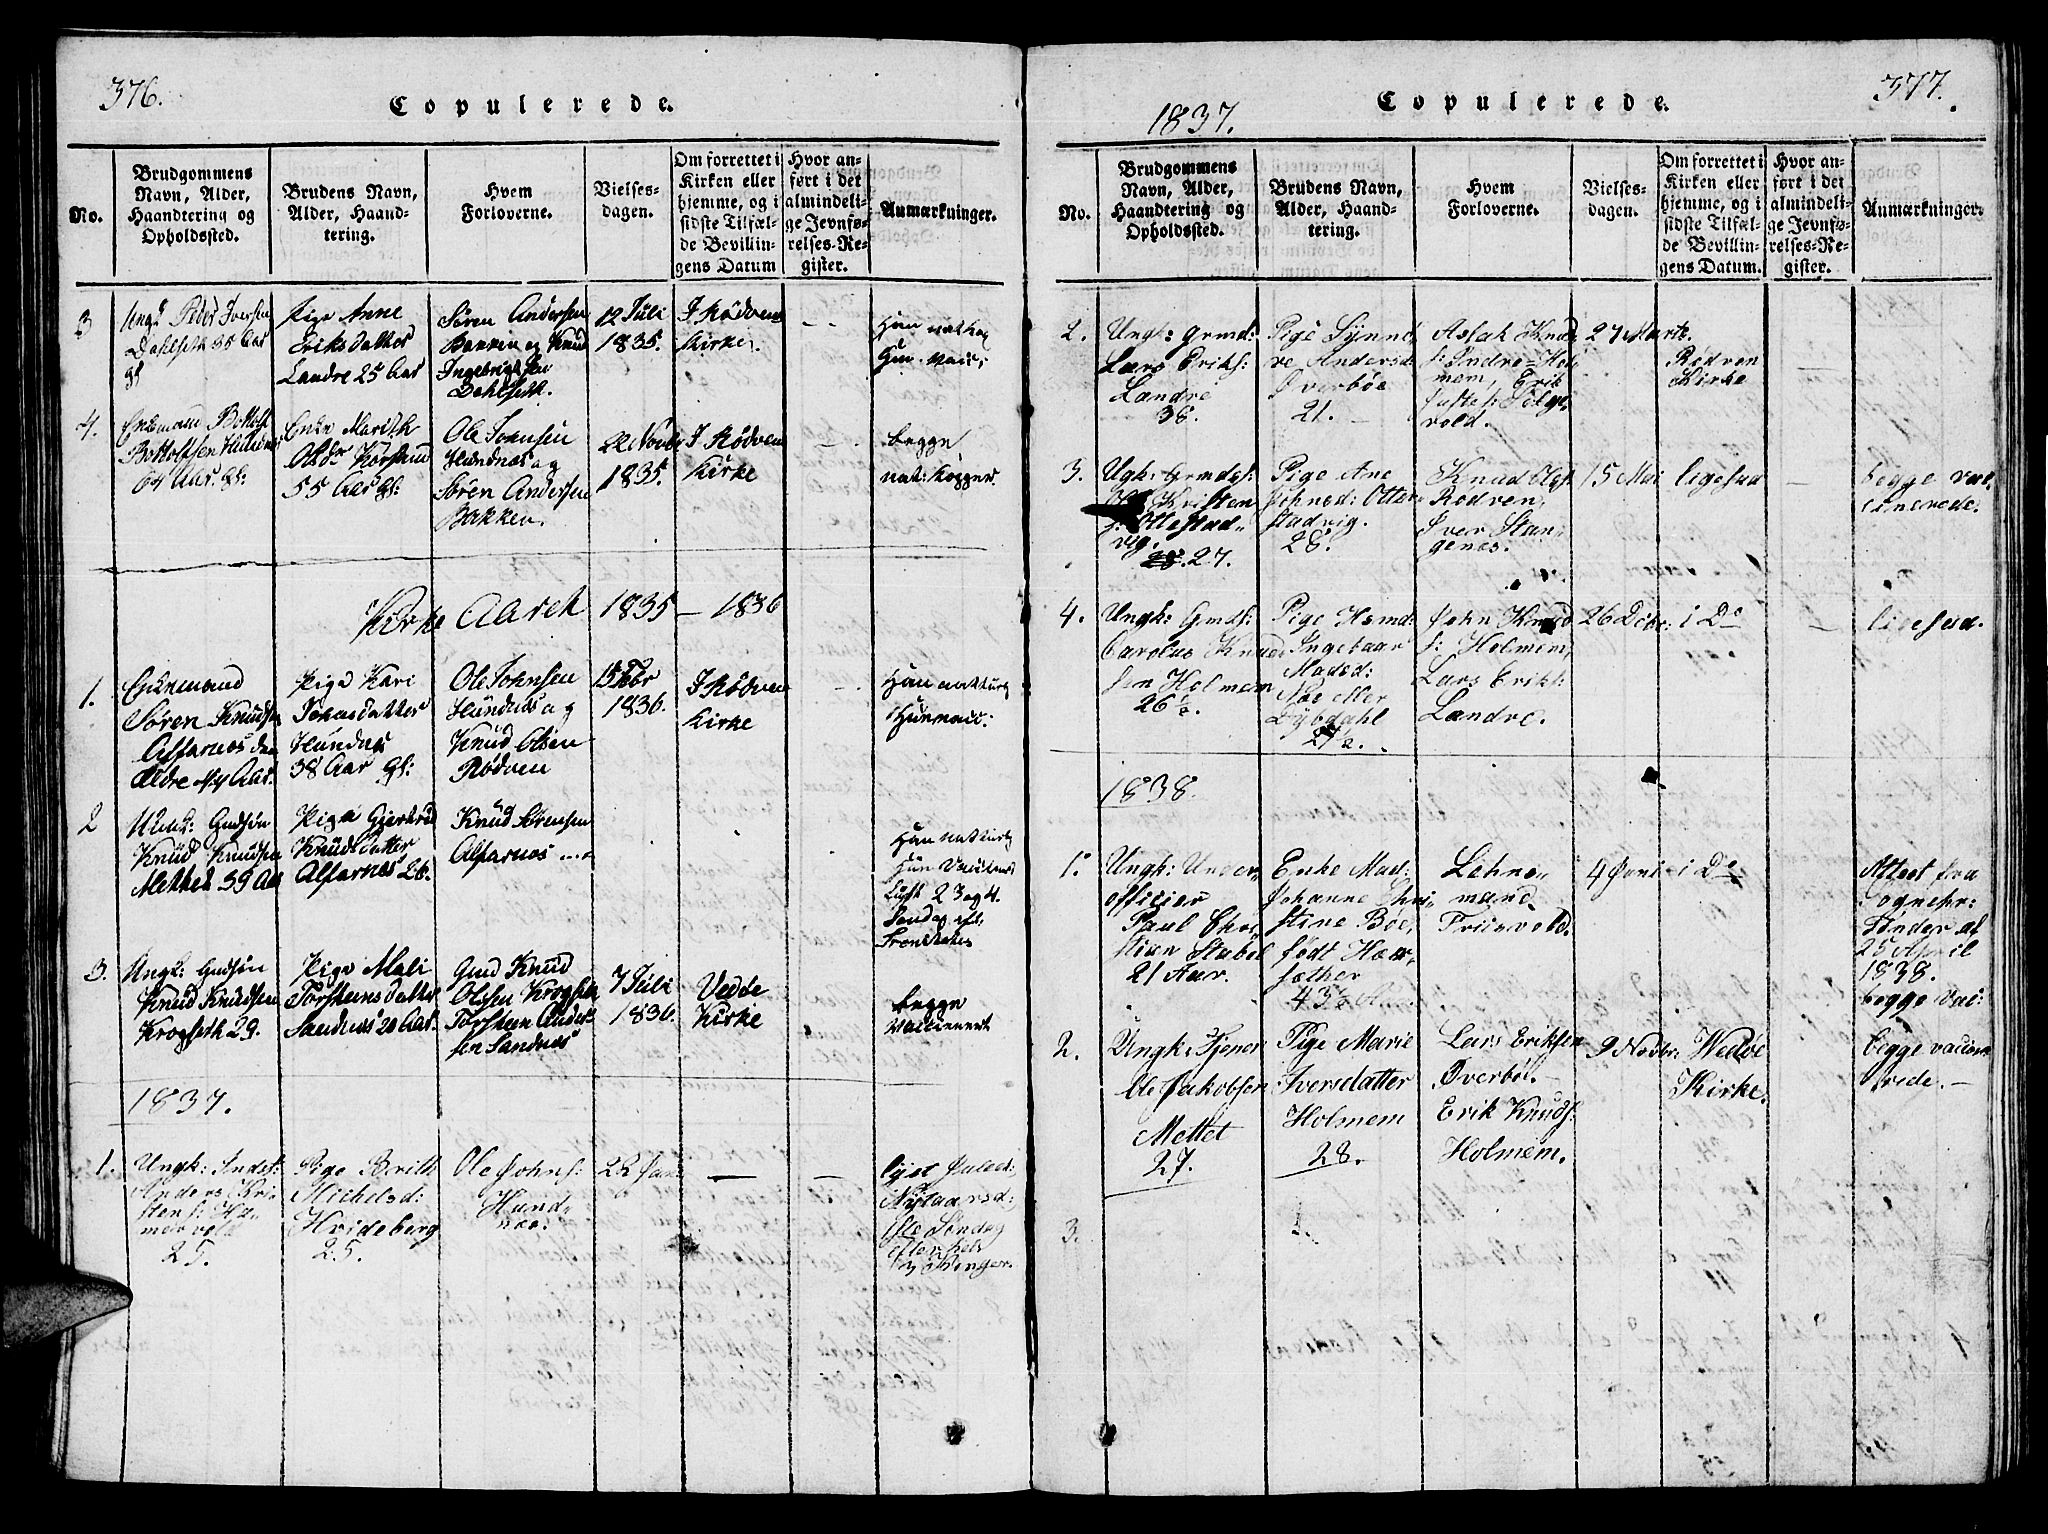 376.
Copulerede.
No.
Brudgommens Navn, Alder, Haandtering og Opholdssted.
Brudens Navn, Alder, Haandtering.
Hvem Forloverne.
Vielsesdagen.
Om forrettet i Kirken eller hjemme, og i sidste Tilfælde Bevillingens Datum
Hvor anført i det almindelige Jevnførelses-Register.
Anmærkninger.
3
Ungk Peder Iversen
Dahlseth 35 Aar
Pige Anne
Eriksdatter
Landre 25 Aar
Søren Andersen
Bakken og Knud
Ingebrigtsen
Dahlseth.
12 Juli
1835.
I Rødven
Kirke.
Han nat kop
Hun vacc:
4.
Enkemand Bottolf
Bottolfsen Hundnes
64 Aar. gl:
Enke Marith
Olsdr Korsham
55 Aar gl:
Ole Johnsen
Hundnæs og
Søren Andersen
Bakken.
22 Novbr
1835.
I Rødven
Kirke
begge
nat: kopper
Kirke Aaret 1835 — 1836
1.
Enkemand
Søren Knudsen
Alfarnæs den
Ældre Aar.
Pige Kari
Johnsdatter
Hundnæs
38 Aar gl:
Ole Johnsen
Hundnæs og
Knud Olsen
Rødven
1836.
I Rødven
Kirke
Han natturl
Hun vacc:
2
Ungk: Gudsøn
Knud Knudsen
Mettet 39 Aar
Pige Gjertrud
Knudsdatter
Alfarnæs 26.
Knud Sørensen
Alfarnæs
Han natturl
Hun
Lyst 2 3 og 4.
Søndag eft.
3.
Ungk: Gudsøn
Knud Knudsen
Krogseth 29.
Pige Mali
Torsteinsdatter
Sandnæs 20 Aar.
Gmd Knud
Olssen Krogseth
Torsteen Anders
sen Sandnæs
7 Juli
1836.
Vedøe
Kirke
begge
vaccineret
1837.
1.
Ungk: Inds:
Anders Kri
stens:
25.
Pige Brith
Michelsd:
Hvideberg
25.
Ole Johns:
Hund-
næs.
22 Jan
—
—
lyst
Nytaarsd:
Søndag
377.
1837.
Copulerede.
No.
Brudgommens Navn, Alder, Haandtering og Opholdssted.
Brudens Navn, Alder, Haandtering.
Hvem Forloverne.
Vielsesdagen.
Om forrettet i Kirken eller hjemme, og i sidste Tilfælde Bevillingens Datum.
Hvor anført i det almindelige Jevnførelses-Register.
Anmærkninger.
2.
Ungk: Grmd:
Lars Eriks:
Landre
38.
Pige Synnø
ve Andersd
Øverbøe
21.
Aslak Knud
s: Indre-Hol
mem, Erik
Solge
vold.
27 Marts.
Rødven
Kirke
—
3.
Ugk: Grmds:
Kristen
s: Ottestad
vig.
27.
Pige Ane
Johnsd: Otte
stadvig.
28.
Knud Ols:
Rødven,
Iver Stan
genæs.
15 Mai
ligesaa
—
begge vac
cinerede.
4.
Ungk: Gmds:
Carolus Knud
sen Holmem
26½.
Pige Hsmd:
Ingebaar
Madsd:
Noe eller
Dybdahl
John Knud
s: Holmem,
Lars Eriks:
Landre.
26 Decbr:
i Do
—
ligesaa.
1838.
1.
Ungk: Under
officier
Paul Chri
stian Stabel
21 Aar.
Enke Mad:
Johanne Chri
stine Bøe,
født Hær
sæther
43½ A
Lehns-
mand
Friisvold.
4 Juni
i Do
Attest fra
Sognepr:
Tønder af
25 April
1838.
begge Vac:
2.
Ungk: Tjener
Ole Jakobsen
Mettet
27.
Pige Marie
Iversdatter
Holmem
28.
Lars Eriksen
Øverbø.
Erik Knuds:
Holmem.
9 Novbr:
Wedøe
Kirke.
begge vaccine
rede.
3.